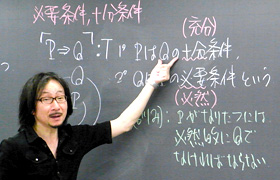 必要条件,十分条件
(充分)
「P⇒Q」:Tのとき PはQの十分条件,
QはPの必要条件という
(必然)
Pがなりたつには
必然的にQで
なければならない